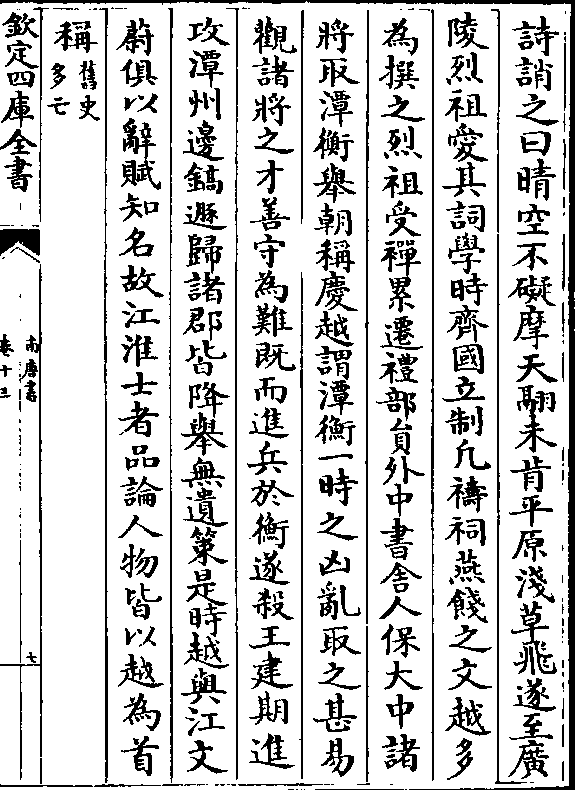 詩誚之曰晴空不礙摩天翮未肯平原淺草飛遂至廣
陵烈祖愛其詞學時齊國立制凡禱祠燕餞之文越多
為撰之烈祖受禪累遷禮部員外中書舍人保大中諸
將取潭衡舉朝稱慶越謂潭衡一時之凶亂取之甚易
觀諸將之才善守為難既而進兵於衡遂殺王建期進
攻潭州邊鎬遯歸諸郡皆降舉無遺策是時越與江文
蔚俱以辭賦知名故江淮士者品論人物皆以越為首
稱舊史多亡
欽定四庫全書
南唐書
卷十三
七